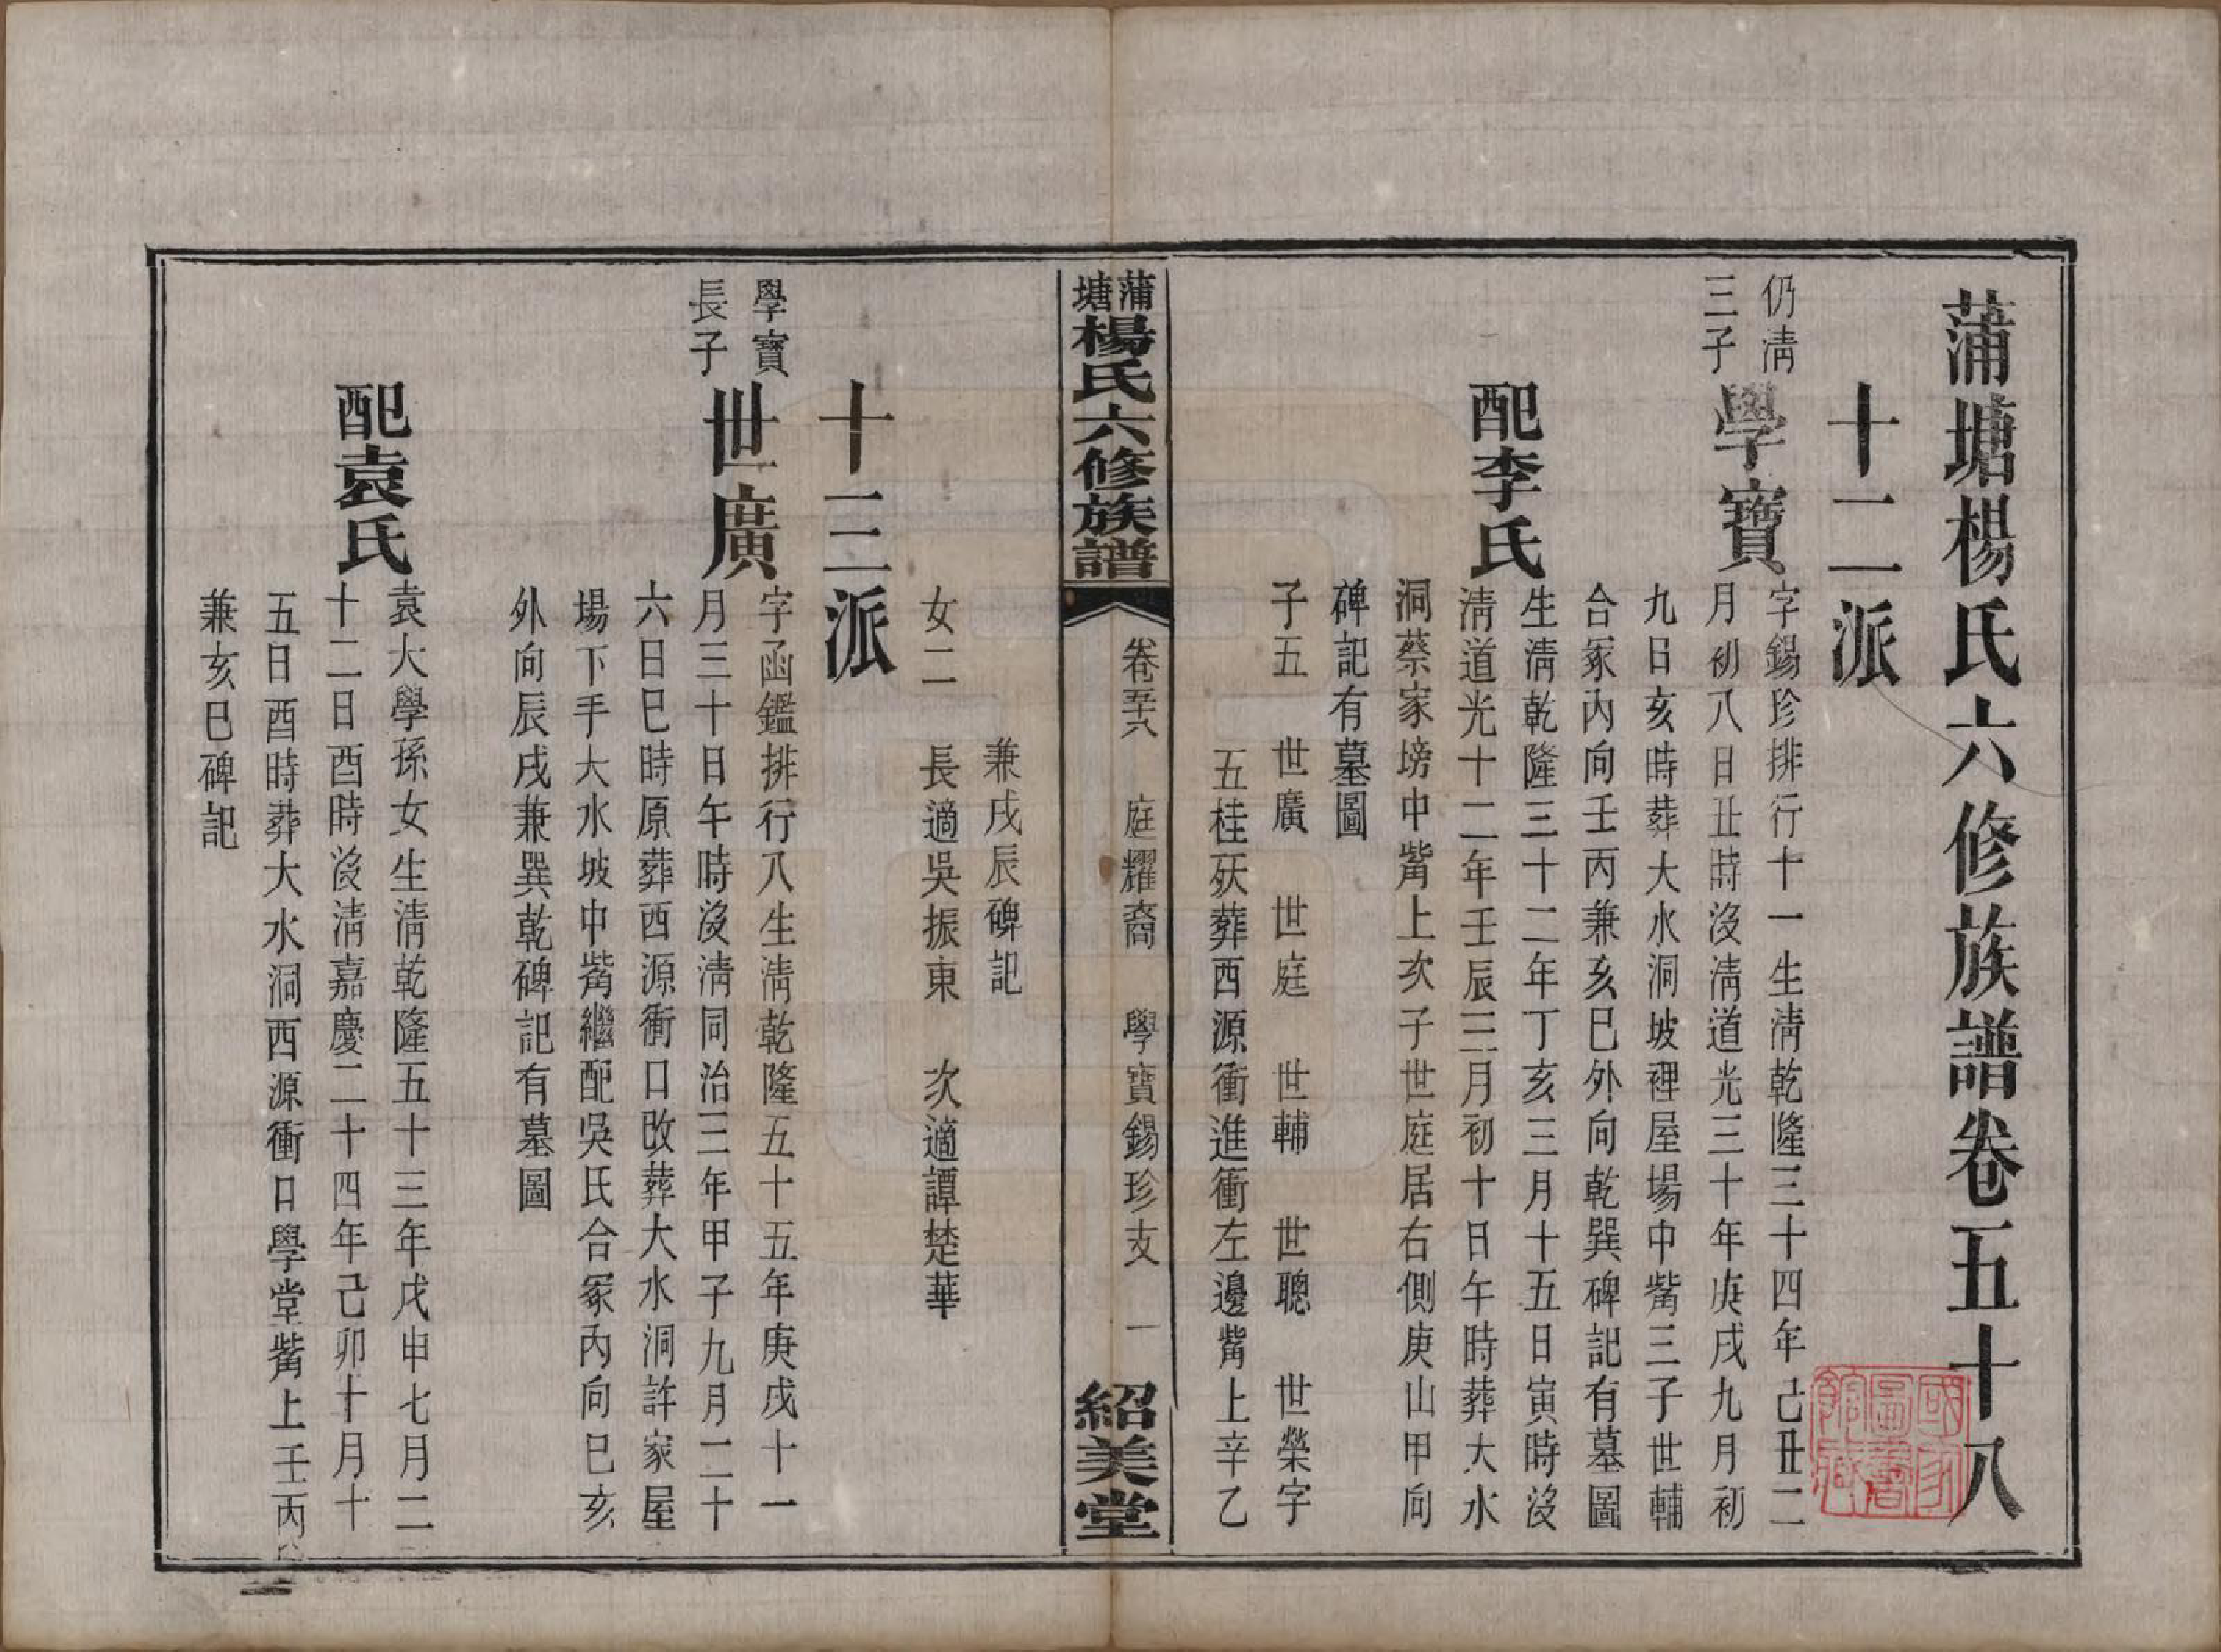 蒲塘楊氏六修族譜卷五十八
十二派
仍淸
三子
學寶
字錫珍排行十一生淸乾隆三十四年己丑二
月初八日丑時沒淸道光三十年庚戌九月初
九日亥時葬大水洞坡裡屋場中觜三子世輔
合冢內向壬丙兼亥巳外向乾巽碑記有墓圖
配李氏
生淸乾隆三十二年丁亥三月十五日寅時沒
淸道光十二年壬辰三月初十日午時葬大水
洞蔡家塝中觜上次子世庭居右側庚山甲向
碑記有墓圖
子五　世廣　世庭　世輔　世聰　世榮字
五桂殀葬西源衝進衝左邊觜上辛乙
蒲塘楊氏六修族譜
卷五十八　庭耀裔　學寶錫珍支　一
紹美堂
兼戌辰碑記
女二　長適吳振東　次適譚楚華
十三派
學寶
長子
世廣
字函鑑排行八生淸乾隆五十五年庚戌十一
月三十日午時沒淸同治三年甲子九月二十
六日巳時原葬西源衝口改葬大水洞許家屋
場下手大水坡中觜繼配吳氏合冢內向巳亥
外向辰戌兼巽乾碑記有墓圖
配袁氏
袁大學孫女生淸乾隆五十三年戊申七月二
十二日酉時沒淸嘉慶二十四年己卯十月十
五日酉時葬大水洞西源衝口學堂觜上壬丙
兼亥巳碑記
國家圖書館藏